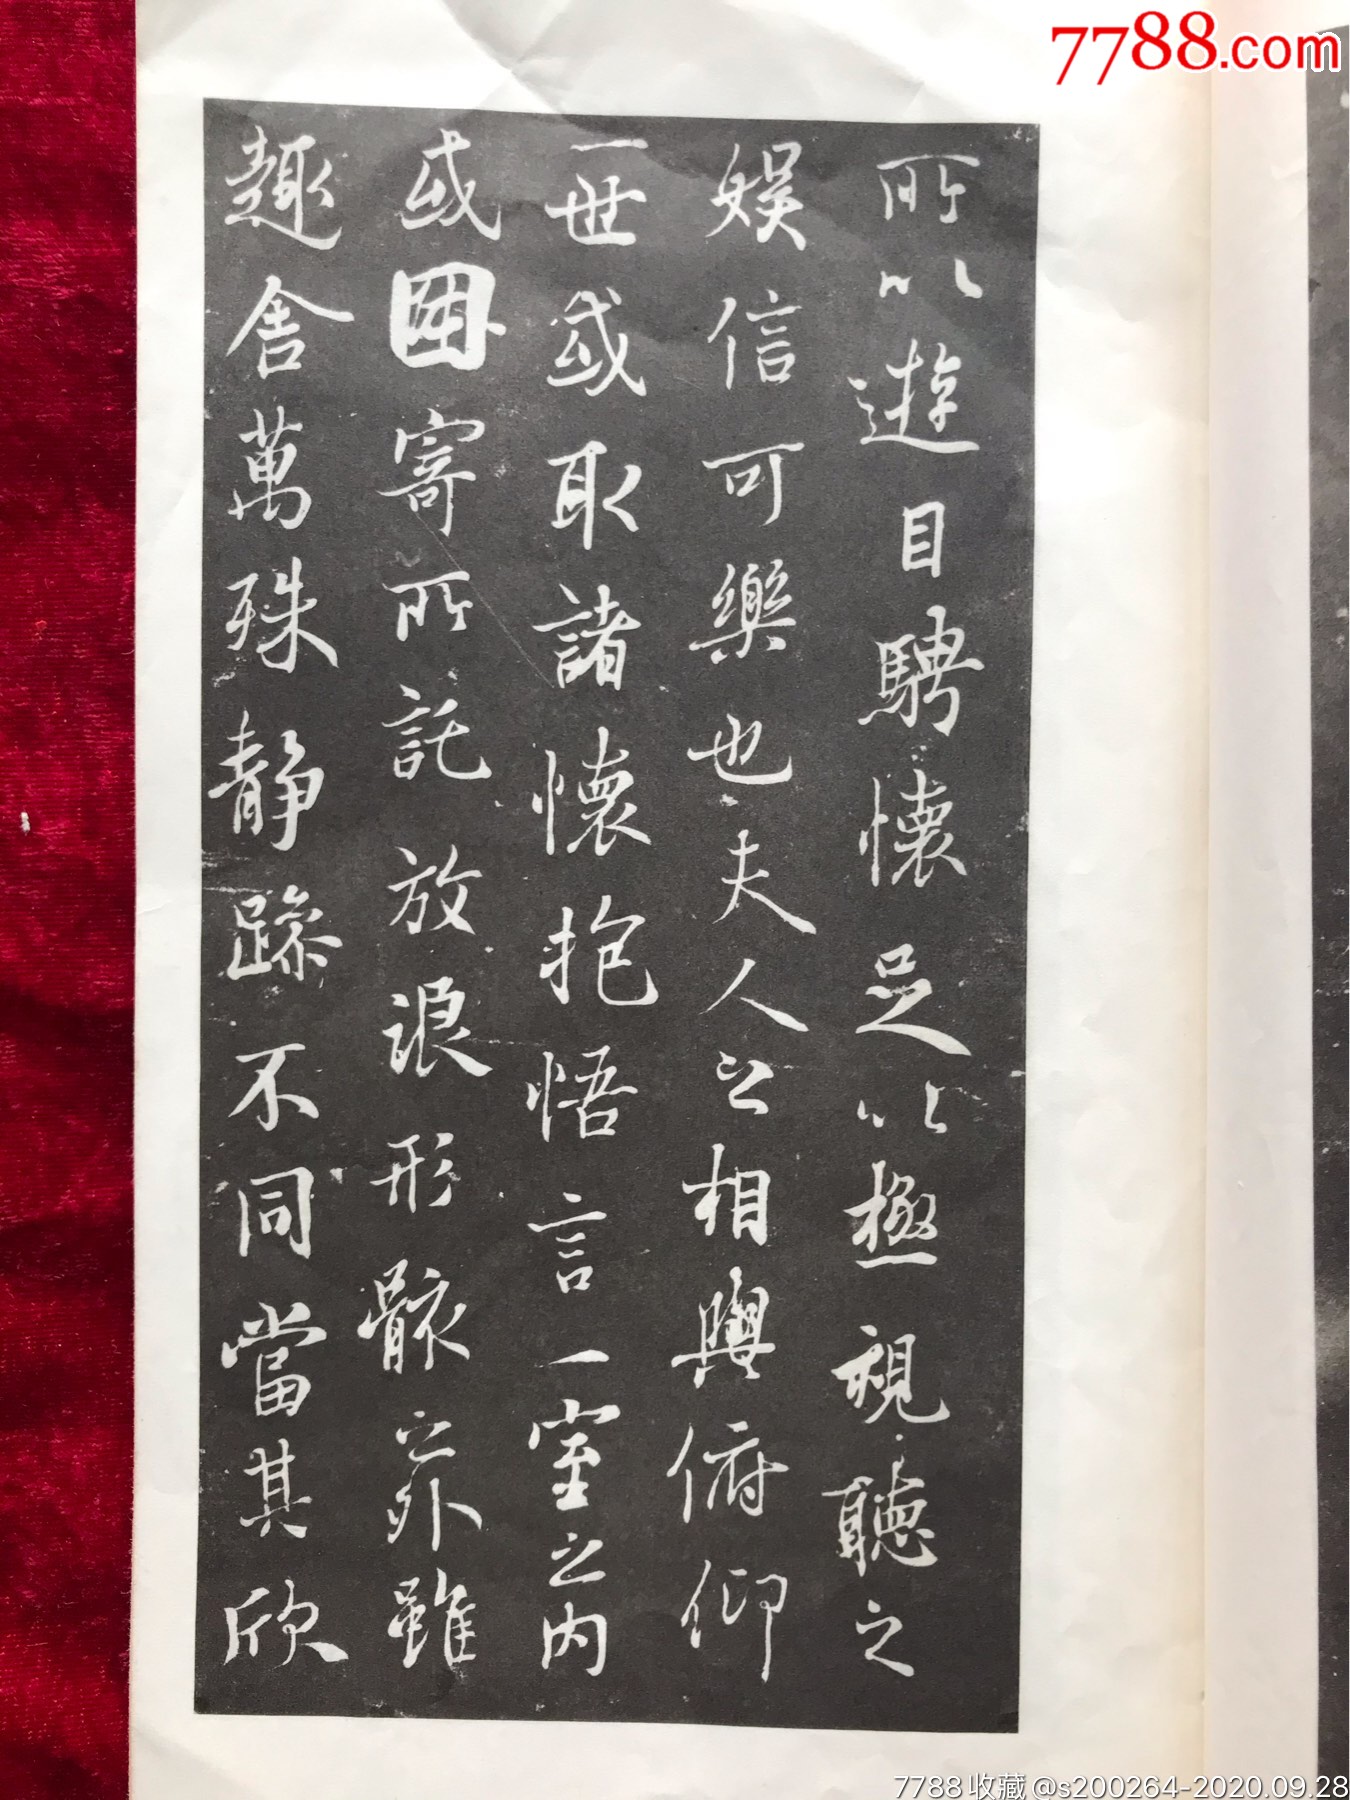 7788.com
所以遊目騁懷足以極視聽之
娛信可樂也夫人之相與俯仰
一世或取諸懷抱悟言一室之內
或因寄所託放浪形骸之外雖
趣舍萬殊静躁不同當其欣
7788收藏@s200264-2020.09.28